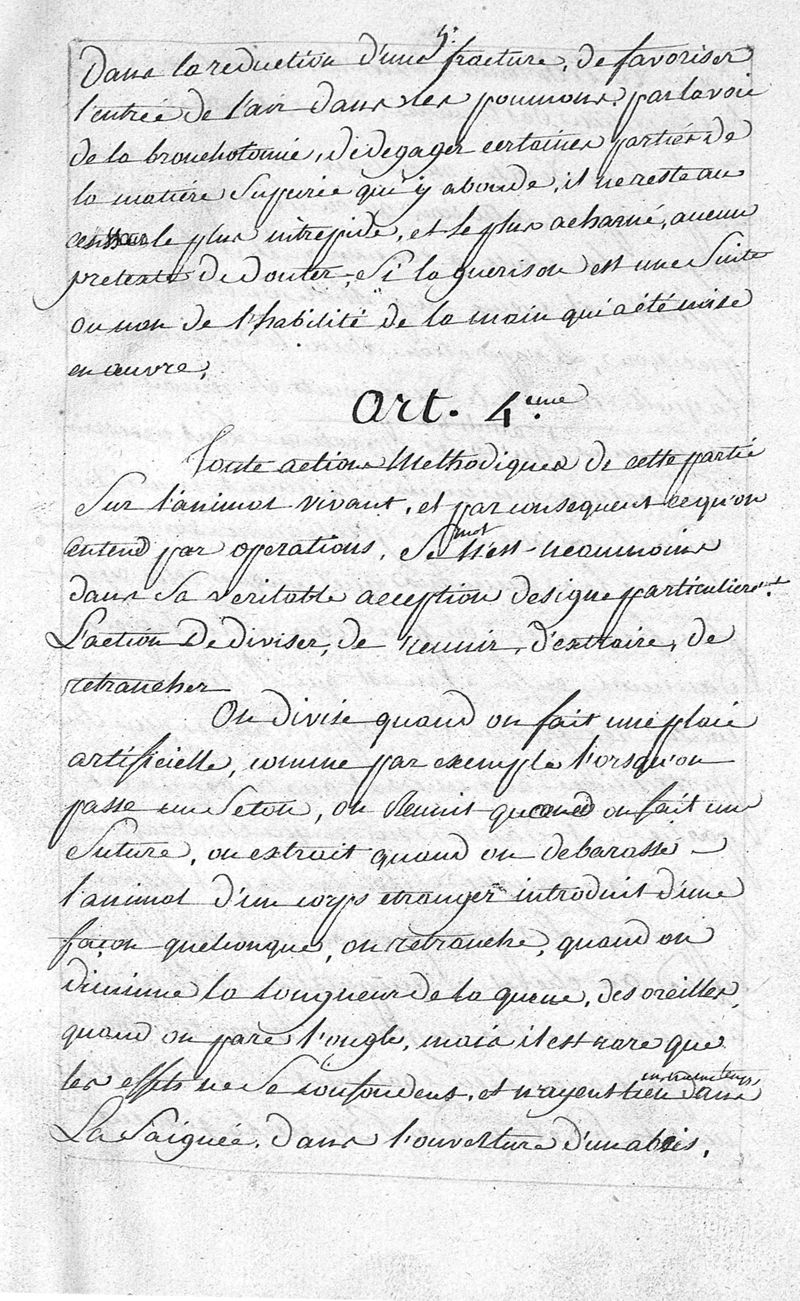 5.
Dans la reduction d'une fracture, de favoriser
l'entrée de l'air dans les poumons, par la voie
de la bronchotomie, de degager certaines parties de
la matiere supurée qui y abonde, il ne reste au
censeur le plus intrepide, et le plus acharné, aucun
pretexte de douter, si la guerison est une suite
ou non de l'habilité de la main qui a été mise
en œuvre.
Art. 4.eme
Toute actions Methodiques de cette partie
sur l'animal vivant, et par consequent ce qu'on
entend par operations, Ce mot n'est neanmoins
dans sa veritable acception designe particulierem.t
L'action de diviser, de reunir, d'extraire, de
retrancher
On divise quand on fait une plaie
artificielle, comme par exemple l'orsqu'on
passe un Seton, on Reunit quand on fait une
Suture, on extrait quand on debarasse
l'animal d'un corps etranger introduit d'une
façon quelconque, on retranche, quand on
diminue la longueur de la queue, des oreilles,
quand on pare l'ongle, mais il est rare que
les effets ne se confondens, et n'ayent lieu en meme temps dans
La Saignée, dans l'ouverture d'un abcès.